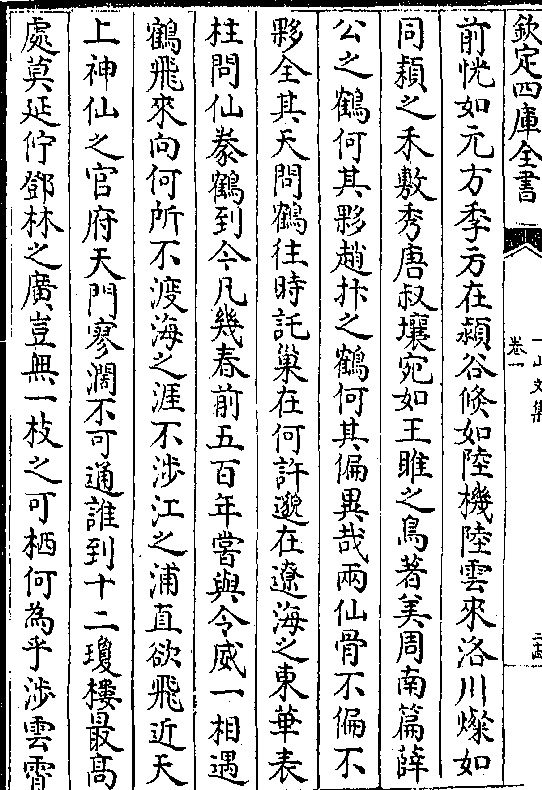 欽定四庫全書
卷一
前恍如元方季方在潁谷倐如陸機陸雲來洛川燦如
同穎之禾敷秀唐叔壤宛如王雎之鳥著美周南篇薛
公之鶴何其夥趙抃之鶴何其偏異哉兩仙骨不偏不
夥全其天問鶴往時託巢在何許邈在遼海之東華表
柱問仙豢鶴到今凡幾春前五百年嘗與令威一相遇
鶴飛來向何所不渡海之涯不涉江之浦直欲飛近天
上神仙之官府天門寥濶不可通誰到十二瓊樓最高
處莫延佇鄧林之廣豈無一枝之可栖何為乎涉雲霄